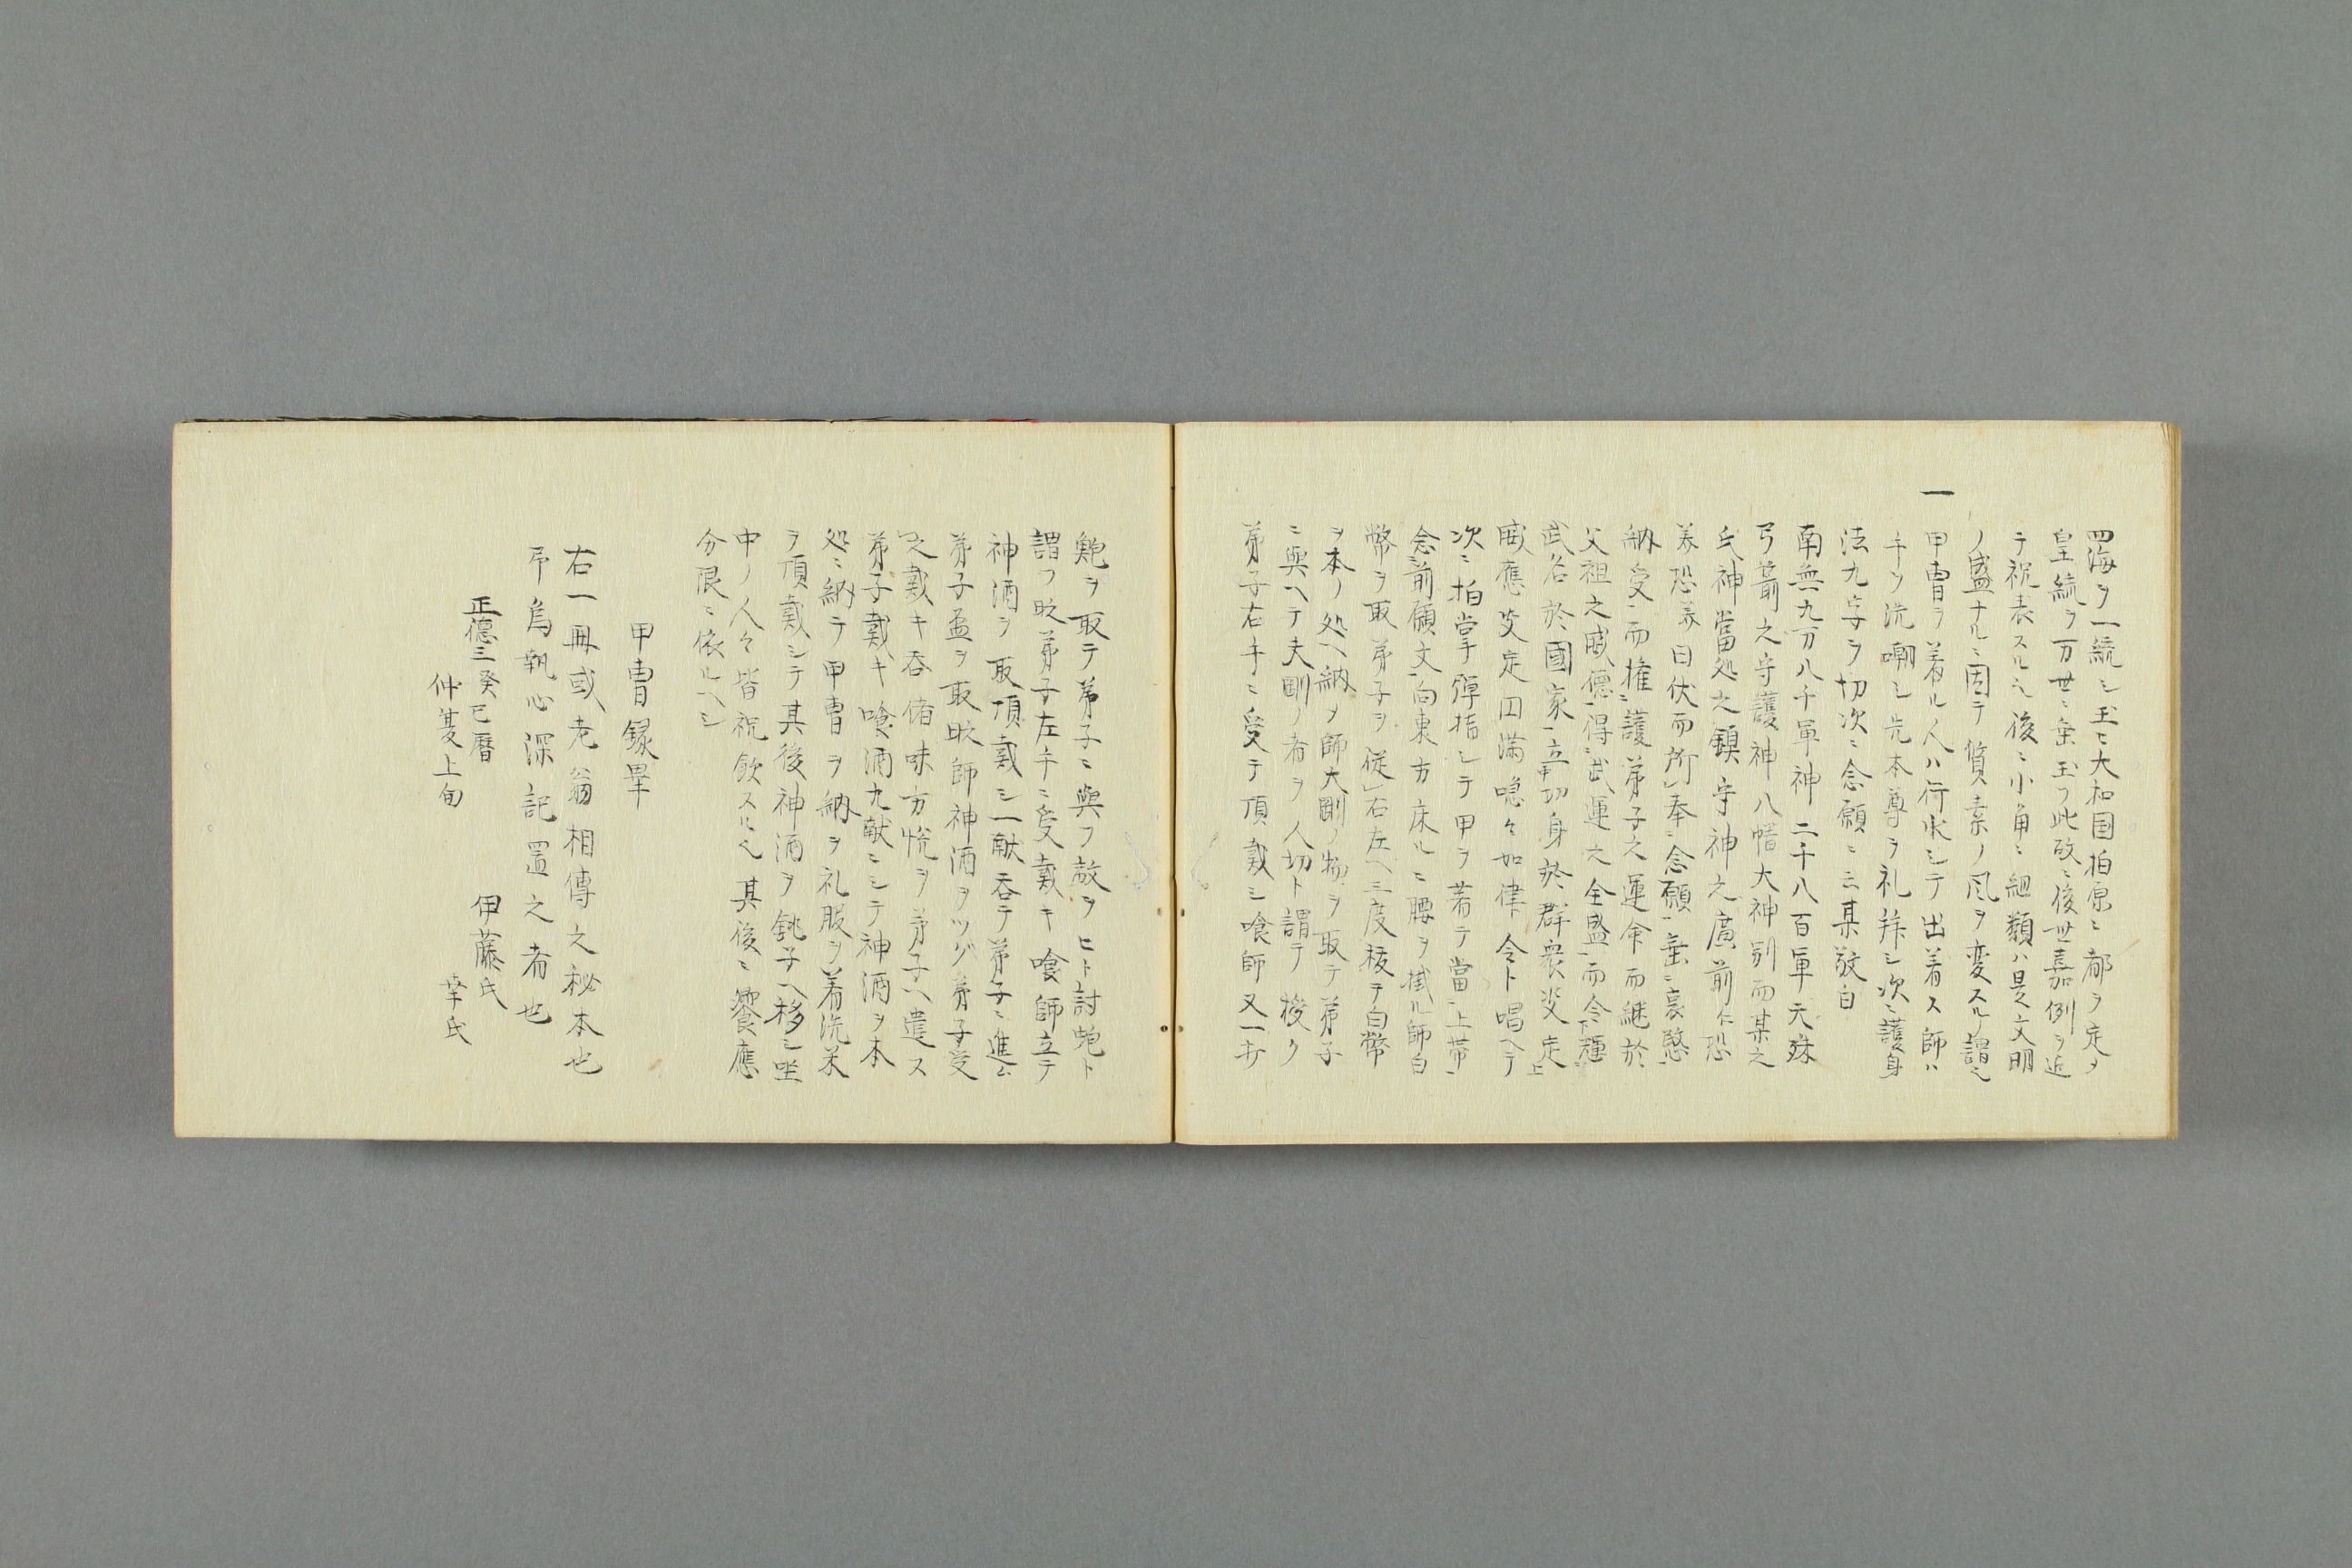 四海ヲ一統シ玉ヒ大和国柏原ニ都ヲ定メ
皇統ヲ万世ニ垂玉フ此故ニ後世嘉例ヲ追
テ祝表スル也後ニ小角ニ組類ハ是文明
ノ盛ナルニ因テ質素ノ風ヲ変スル謂也
一
甲冑ヲ着ル人ハ行水シテ出着ス師ハ
手ヲ洗嗽シ先本尊ヲ礼拝シ次ニ護身
法九字ヲ切次ニ念願ニ云某敬白
南無九万八千軍神二千八百軍天殊
弓箭之守護神八幡大神別而某之
氏神當処之鎮守神之廣前仁恐
美恐美曰伏而所奉念願垂哀愍
納受而権護弟子之運命而継於
父祖之威德得武運之全盛而令輝
武名於國家立功身於群衆决定
威應决定円満喼々如律令ト唱ヘテ
次ニ拍掌弾指シテ甲ヲ着テ當上帯
念前願文向東方床ルニ腰ヲ掛ル師白
幣ヲ取弟子ヲ従右左ヘ三度祓テ白幣
ヲ本ノ処ヘ納ヲ師大剛ノ物ヲ取テ弟子
ニ與ヘテ夫剛ノ者ヲ人切ト謂テ授ク
弟子右手ニ受テ頂戴シ喰師又一打
鮑ヲ取テ弟子ニ與フ敵ヲヒト討鮑ト
謂フ時弟子左手ニ受戴キ喰師立テ
神酒ヲ取頂戴シ一献呑テ弟子ニ進ム
弟子盃ヲ取時師神酒ヲツグ弟子受
之戴キ呑偖味方悦ヲ弟子ヘ遣ス
弟子戴キ喰酒九献ニシテ神酒ヲ本
処ニ納テ甲冑ヲ納ヲ礼服ヲ着洗米
ヲ頂戴シテ其後神酒ヲ銚子ヘ移シ坐
中ノ人々皆祝飲スル也其後ニ饗應
分限ニ依ルヘシ
甲冑録畢
右一冊或老翁相傳之秘本也
予為執心深記置之者也
正德三癸巳暦
仲夏上旬
伊藤氏
幸氏